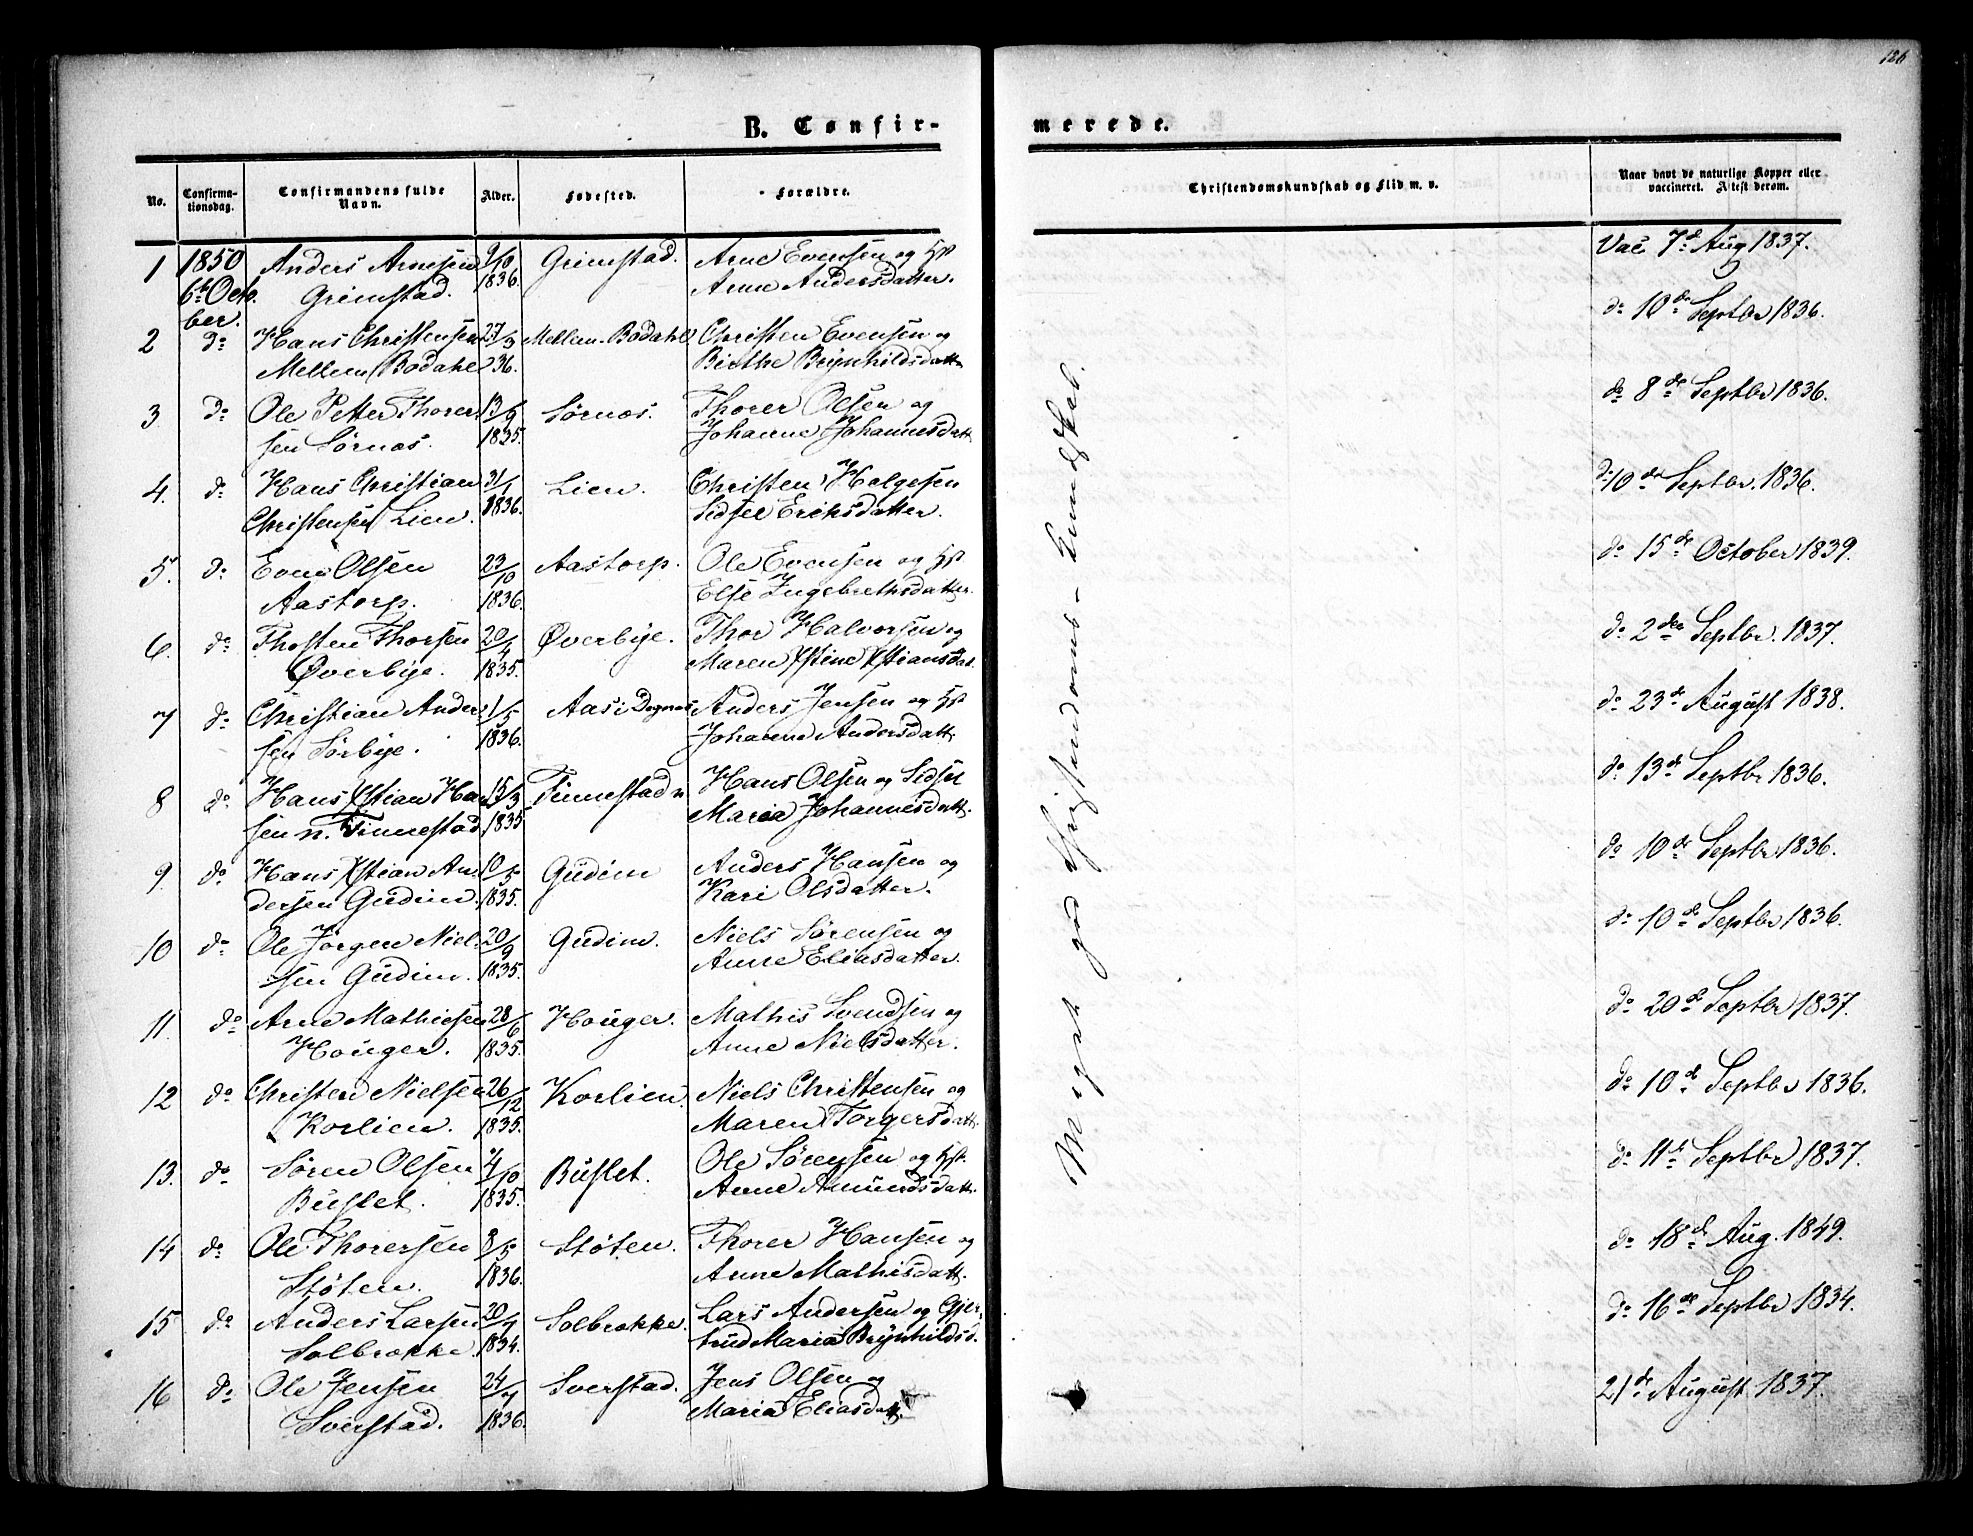 126
B. Confir-
merede.
No.
Confirma-
tionsdag.
Confirmandens fulde
Navn.
Alder.
Fødested.
Forældre.
Christendomskundskab og Flid m. v.
Naar havt de naturlige Kopper eller
vaccineret. Attest derom.
1 1850 Anders Arnesen 9/10 Grimstad. Arne Evensen og Hst
6te Octo- Grimstad. 1836. Anne Andersdatter. Vac 7d Aug 1837.
ber.
2 do Hans Christensen 27/3 Mellem-Bodahl Christen Evensen og do 10de Septbr 1836.
Mellem Bodahl 36. Birthe Brynhildsdatt
3 do Ole Petter Thorer- 13/9 Sørnæs. Thorer Olsen og do 8de Septbr 1836.
sen Sørnæs. 1835. Johanne Johannesdatt
4. do Hans Christian 31/1 Lien. Christen Helgesen do 10de Septbr. 1836.
Christensen Lien. 1836. Sidsel Eriksdatter.
5. do Even Olsen 23/10 Aastorp. Ole Evensen og Hst do 15de October 1839.
Aastorp. 1836. Else Ingebrethsdatter.
6. do Thosten Thorsen 20/4 Øverbye. Thor Halvorsen og do 2den Septbr. 1837.
Øverbye. 1835. Maren Xstine Xstiansdat.
7 do Christian Ander- 1/5 Aas i Degnes Anders Jensen og Hst do 23de August 1838.
sen Sørbye. 1836. Johanne Andersdatt.
8 do Hans Xstian Han 15/3 Tinnestad n Hans Olsen og Sidsel do 13de Septbr 1836.
sen n. Tinnestad 1835 Maria Johannesdatt.
9. do Hans Xstian An 10/5 Gudim Anders Hansen og do 10de Septbr 1836.
dersen Gudim. 1835. Kari Olsdatter.
10 do Ole Jørgen Niel- 20/9 Gudim. Niels Sørensen og do 10de Septbr 1836.
sen Gudim. 1835. Anne Eliasdatter.
11. do Arne Mathiesen 28/6 Houger. Mathis Svendsen og do 20de Septbr 1837.
Houger. 1835. Anne Nielsdatter.
12 do Christen Nielsen 26/12 Korlien. Niels Christensen og do 10de Septbr 1836.
Korlien. 1835. Maren Torgersdatt.
13. do Søren Olsen 4/10 Buslet. Ole Sørensen og Hst. do 11te Septbr 1837.
Buslet. 1835. Anne Amundsdatt.
14 do Ole Thorersen 8/5 Støten. Thorer Hansen og do 18de Aug. 1849.
Støten. 1836. Anne Mathisdatt.
15 do Anders Larsen 20/7 Solbrække. Lars Andersen og Gjer- do 16de Septbr 1834.
Solbrække. 1834. trud Maria Brynhildsd.
16 do Ole Jensen 24/7 Sverstad. Jens Olsen og 21de August 1837.
Sverstad. 1836. Maria Eliasdatt.
Meget god Christendoms-Kundskab.